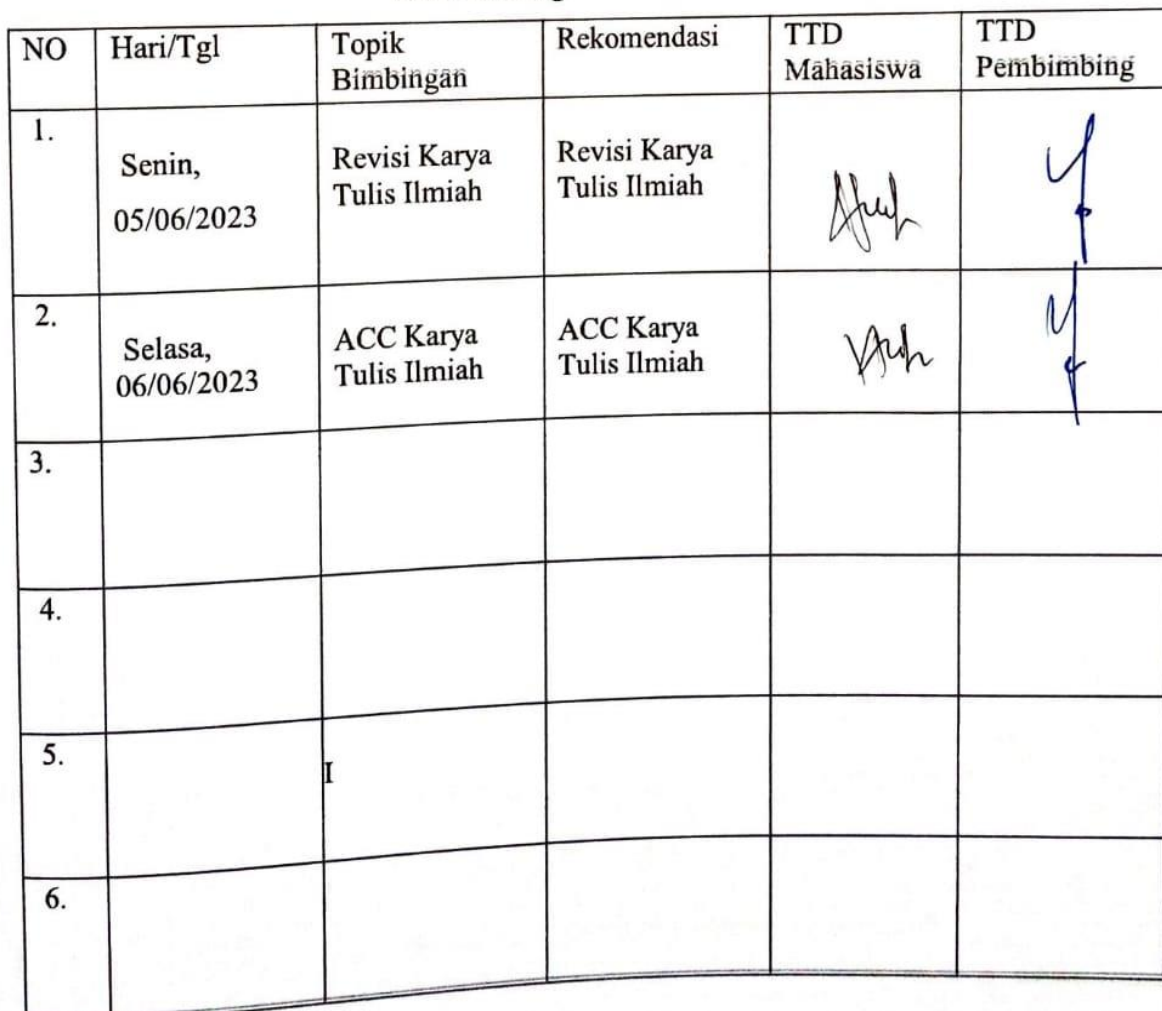 NO Hari/Tgl Topik Bimbingan Rekomendasi TTD Mahasiswa TTD Pembimbing
1. Senin, 05/06/2023 Revisi Karya Tulis Ilmiah Revisi Karya Tulis Ilmiah
2. Selasa, 06/06/2023 ACC Karya Tulis Ilmiah ACC Karya Tulis Ilmiah
3.
4.
5. I
6.